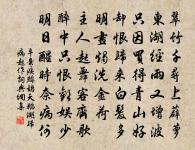 翠竹千尋上薜蘿
東湖經雨又增波
只因買得青山好
却恨歸來白髮多
明畫燭洗金荷
主人起舞客齊歌
醉中只恨歡娛少
明日醒時奈病何
辛棄疾鷓鴣天鵝湖歸
病起作詞典網集